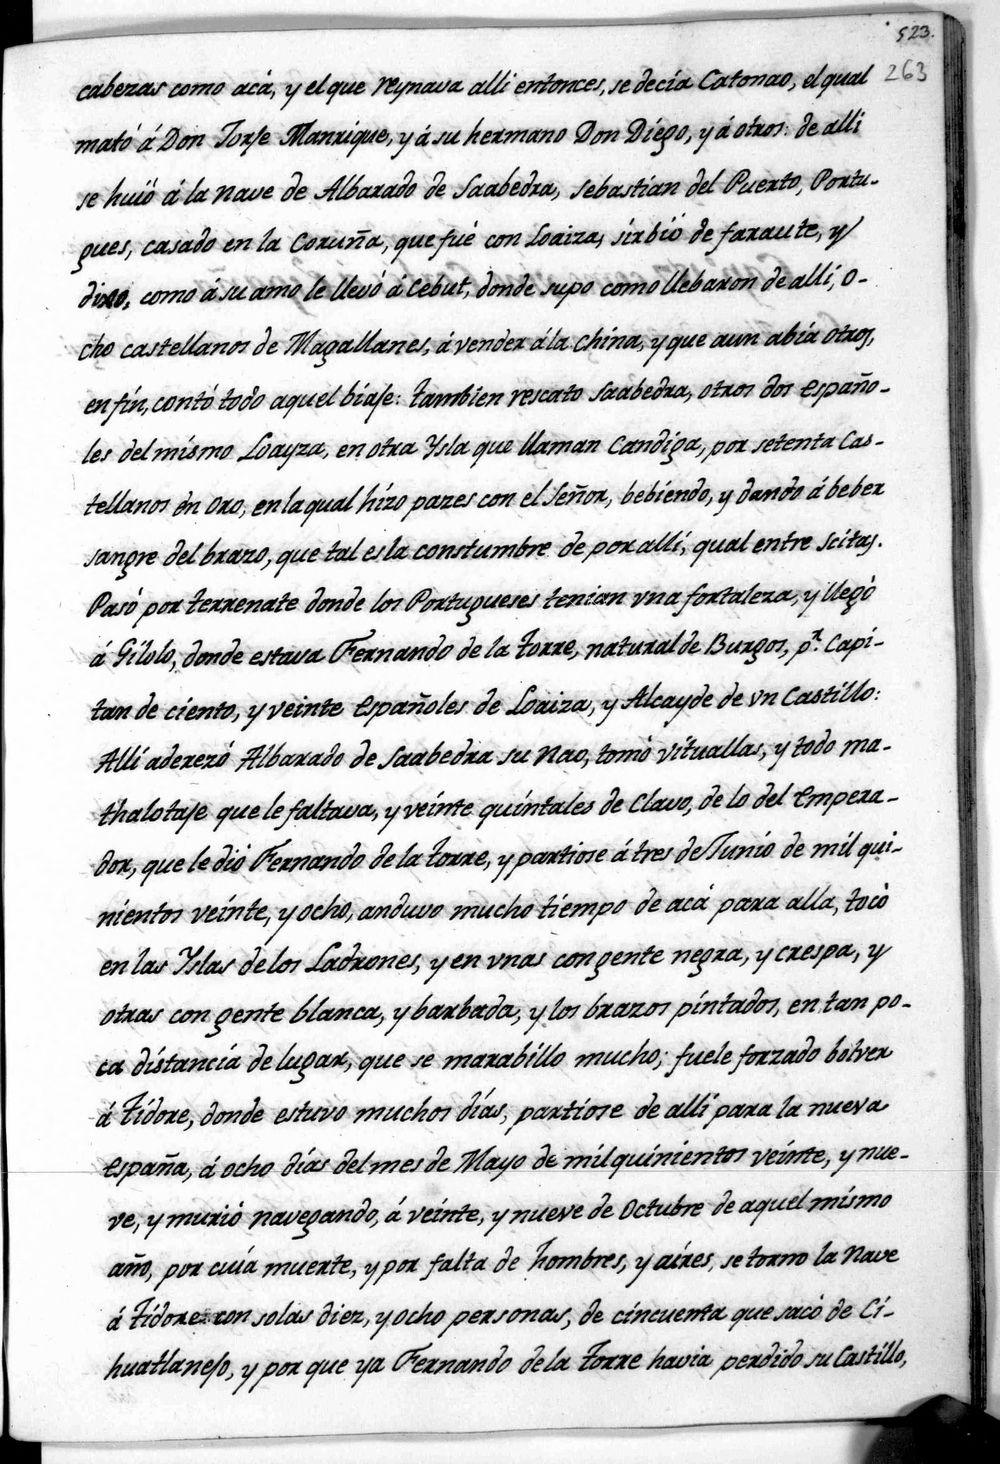 523.
263
cabezas como acá, y el que reynava alli entonces, se decia Catonao, el qual
mató á Don Jorje Manrique, y á su hermano Don Diego, y á otros: de alli
se huió á la nave de Albarado de Saabedra, Sebastian del Puerto, Portu-
gues, casado en la Coruña, que fué con Loaiza, sirbió de faraute, y
dixo, como á su amo le llevó á Cebut, donde supo como llebaron de alli, o-
cho castellanos de Magallanes, á vender á la china, y que aun abia otros,
en fin, contó todo aquel biaje: tambien rescato Saabedra, otros dos españo-
les del mismo Loayza, en otra Ysla que llaman Candiga, por setenta Cas-
tellanos en oro, en la qual hizo pazes con el Señor, bebiendo, y dando á beber
sangre del brazo, que tal es la constumbre de por alli, qual entre scitas.
Pasó por terrenate donde los Portugueses tenian vna fortaleza, y llegó
á Gilolo, donde estava Fernando de la torre, natural de Burgos, pr. Capi-
tan de ciento, y veinte españoles de Loaiza, y Alcayde de vn Castillo:
Alli aderezó Albarado de Saabedra su Nao, tomó vituallas, y todo ma-
thalotaje que le faltava, y veinte quintales de Clavo, de lo del empera-
dor, que le dió Fernando de la torre, y partiose á tres de Junio de mil qui-
nientos veinte, y ocho, anduvo mucho tiempo de acá para alla, tocó
en las Yslas de los Ladrones, y en vnas con gente negra, y crespa, y
otras con gente blanca, y barbada, y los brazos pintados, en tan po-
ca distancia de lugar, que se marabillo mucho; fuele forzado bolver
á tidore, donde estuvo muchos días, partiose de alli para la nueva
españa, á ocho días del mes de Mayo de mil quinientos veinte, y nue-
ve, y murió navegando, á veinte, y nueve de Octubre de aquel mismo
año, por cuia muerte, y por falta de hombres, y aires, se torno la Nave
á tidore con solas diez, y ocho personas, de cincuenta que sacó de Ci-
huatlanejo, y por que ya Fernando de la torre havia perdido su Castillo,